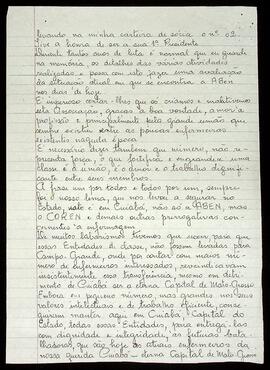 levando na minha carteira de sócia o nº 02.
Tive a honra de ser a sua 1ª Presidente
Durante tantos anos de luta é normal que eu guarde
na memória, os detalhes das várias atividades
realizadas e possa com isto fazer uma avaliação
da situação atual em que se encontra a ABEn
nos dias de hoje.
É necessário dizer-lhes que os criamos e mantivemos
esta Associação, graças a boa vontade, amor a
profissão e principalmente pela grande união que
sempre existiu entre as poucas enfermeiras
existentes naquela época
É necessário dizer também que número, não re-
presenta força, o que fortifica e engrandece uma
classe é a união, é o amor e o trabalho dignifi-
cante entre seus membros.
A frase um por todos e todos por um, sempre
foi o nosso lema, que nos levou a segurar no
Estado, isto é em Cuiabá, não só a ABEn, mas
o COREN e demais outras prerrogativas con-
cernentes a enfermagem.
De muitos trabalhos tivemos que vencer, para que
essas Entidades de classe, não fossem levadas para
Campo Grande, onde por contar com maior nú-
mero de enfermeiros interessados, reivindicavam
insistentemente essa transferência, mesmo em detri-
mento de Cuiabá ser a eterna Capital de Mato Grosso
Embora em pequeno número, mas grandes nos seus
valores intelectuais e de trabalho eficiente, conse-
guiram manter aqui em Cuiabá, Capital do
Estado todas essas Entidades, para entrega-las
com dignidade e integridade, às futuras bata-
lhadoras, que são hoje as atuais enfermeiras da
nossa querida Cuiabá - eterna Capital de Mato Grosso